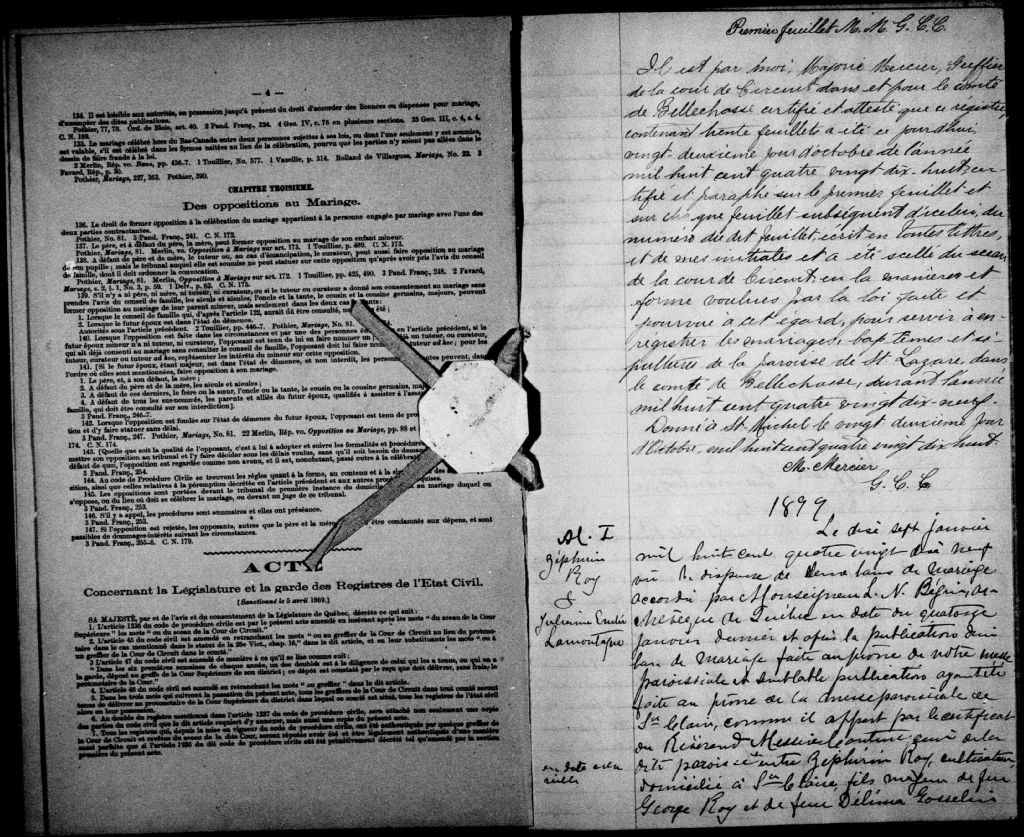 — 4 —
134. Il est loisible aux autorités, en possession jusqu'à présent du droit d'accorder des licences ou dispenses pour mariage,
d'exempter des dites publications.
Pothier, 77, 78. Ord. de Blois, art. 40. 2 Pand. Franç., 324. 4 Geo. IV, c. 76 en plusieurs sections. 33 Geo. III, c. 4, s. 4.
C. N. 169.
135. Le mariage célébré hors du Bas-Canada entre deux personnes sujettes à ses lois, ou dont l'une seulement y est soumise,
est valable, s'il est célébré dans les formes usitées au lieu de la célébration, pourvu que les parties n'y soient pas allées dans le
dessein de faire fraude à la loi.
2 Merlin, Rép. vo. Bans, pp. 436-7. 1 Touillier, No. 577. 1 Vazeille, p. 314. Rolland de Villargus, Mariage, No. 22. 3
Favard, Rép., p. 30.
Pothier, Mariage, 327, 363. Pothier, 390.
CHAPITRE TROISIEME.
Des oppositions au Mariage.
136. Le droit de former opposition à la célébration du mariage appartient à la personne engagée par mariage avec l'une des
deux parties contractantes.
Pothier, No. 81. 3 Pand. Franç., 241. C. N. 172.
137. Le père, et à défaut du père, la mère, peut former opposition au mariage de son enfant mineur.
Pothier, Mariage, 81. Merlin, vo. Opposition à Mariage sur art. 173. 1 Touillier, p. 489. C. N. 173.
138. A défaut de père et de mère, le tuteur ou, au cas d'émancipation, le curateur, peut aussi faire opposition au mariage
de son pupille; mais le tribunal auquel elle est soumise ne peut statuer sur cette opposition qu'après avoir pris l'avis du conseil
de famille, dont il doit ordonner la convocation.
Pothier, Mariage, 81. Merlin, Opposition à Mariage sur art. 172. 1 Touillier, pp. 425, 490. 3 Pand. Franç., 248. 2 Favard,
Mariage, s. 2, § 1, No. 3, p. 59. 1 Delv., p. 62. C. N. 175.
139. S'il n'y a ni père, ni mère, ni tuteur, ni curateur, ou si le tuteur ou curateur a donné son consentement au mariage sans
prendre l'avis du conseil de famille, les aïeuls et aïeules, l'oncle et la tante, le cousin et la cousine germains, majeurs, peuvent
former opposition au mariage de leur parent mineur, mais seulement dans les deux cas
1. Lorsque le conseil de famille qui, d'après l'article 122, aurait dû être consulté, ne été;
2. Lorsque le futur époux est dans l'état de démence.
Autorités sous l'article précédent. 2 Touillier, pp. 446-7. Pothier, Mariage, No. 81.
140. Lorsque l'opposition est faite dans les circonstances et par une des personnes en l'article précédent, si le
futur époux mineur n'a ni tuteur, ni curateur, l'opposant est tenu de lui en faire nommer un
tuteur ou curateur
qui ait déjà consenti au mariage sans consulter le conseil de famille, l'opposant doit lui faire tuteur ad hoc; pour les
tuteur, curateur ou tuteur ad hoc, représenter les intérêts du mineur sur cette opposition.
141. [Si le futur époux, étant majeur, est dans l'état de démence, et non interdit, les personnes peuvent, dans
l'ordre où elles sont mentionnées, faire opposition à son mariage.
1. Le père et, à son défaut, la mère;
2. A défaut du père et de la mère, les aïeuls et aïeules;
3. A défaut de ces derniers, le frère ou la sœur, l'oncle ou la tante, le cousin ou la cousine germains,
4. A défaut de tous les sus-nommés, les parents et alliés du futur époux, qualifiés à assister à
famille, qui doit être consulté sur son interdiction].
3 Pand. Franç., 246-7.
142. Lorsque l'opposition est fondée sur l'état de démence du futur époux, l'opposant est tenu de
tion et d'y faire statuer sans délai.
3 Pand. Franç., 247. Pothier, Mariage, No. 81. 22 Merlin, Rép. vo. Opposition au Mariage, pp. 88 et
174. C. N. 174.
143. [Quelle que soit la qualité de l'opposant, c'est à lui à adopter et suivre les formalités et
mettre son opposition au tribunal et l'y faire décider sous les délais voulus, sans qu'il soit besoin de
défaut de quoi, l'opposition est regardée comme non avenu, et il est, nonobstant, passé outre à la célébration
3 Pand. Franç., 254.
144. Au code de Procédure Civile se trouvent les règles quant à la forme, au contenu et à la
sition, ainsi que celles relatives à la péremption décrétée en l'article précédent et aux autres requises.
145. Les oppositions sont portées devant le tribunal de première instance du domicile au mariage duquel on
s'oppose, ou du lieu où doit se célébrer le mariage, ou devant un juge de ce tribunal.
3 Pand. Franç., 253.
146. S'il y a appel, les procédures sont sommaires et elles ont préséance.
3 Pand. Franç., 253.
147. Si l'opposition est rejetée, les opposants, autres que le père et la mère être condamnés aux dépens, et sont
passibles de dommages-intérêts suivant les circonstances.
3 Pand. Franç., 255-6. C. N. 179.
ACTE
Concernant la Législature et la garde des Registres de l'Etat Civil.
[Sanctionné le 5 avril 1869.]
SA MAJESTÉ, par et de l'avis et du consentement de la Législature de Québec, décrète ce qui suit:
1. L'article 1236 du code de procédure civile est par le présent acte amendé en insérant après les mots "du sceau de la Cour
Supérieure" les mots "ou du sceau de la Cour de Circuit."
2. L'article 45 du code civil est amendé en retranchant les mots "ou au greffier de la Cour de Circuit au lieu du protono-
taire dans le cas mentionné dans le statut de la 25e Vict., chap. 16," dans le dit article, et en leur substituant les mots "ou à
un greffier de la Cour de Circuit dans le comté."
3 L'article 47 du code civil est amendé de manière à ce qu'il se lise comme suit:
"Dans les six premières semaines de chaque année, un des doubles est à la diligence de celui qui les a tenus, ou qui en a
la garde, déposé au greffe de la Cour Supérieure de son district; ce dépôt est constaté par le reçu que doit délivrer, sans frais le
protonotaire de la Cour."
4. L'article 48 du code civil est amendé en retranchant les mots "ou greffier" dans le dit article.
5. Dans les trois mois qui suivront la passation du présent acte, tous les greffiers de la Cour de Circuit dans tout comté seront
tenus de délivrer au protonotaire de la Cour Supérieure du district, dans lequel le comté est situé, tous les registres de l'état civil
alors en leur possession.
6. Au double du registre mentionné dans l'article 1237 du code de procédure civile, sont attachés non seulement une copie
des parties du code civil que le dit article requiert d'y annexer, mais aussi une copie du présent acte.
7. Tous les registres qui, depuis la mise en vigueur du code de procédure civile, ont été authentiqués par quelque greffier de
la Cour de Circuit et revêtus du sceau de la dite Cour, seront réputés avoir été et être légalement authentiqués d'une manière
aussi parfaite que si l'article 1236 du dit code de procédure civile eût été primitivement décrété tel qu'amendé par la section
première du présent acte.
Premier feuillet M. M. G. C. C.
Il est par moi, Majorie Mercier, Greffier
de la cour de Circuit dans et pour le comté
de Bellechasse certifié et attesté que ce registre,
contenant trente feuillets a été ce jourd'hui,
vingt-deuxième jour d'octobre de l'année
mil huit cent quatre vingt dix-huit, cer-
tifié et paraphé sur le premier feuillet et
sur chaque feuillet subséquent d'icelui, du
numéro du dit feuillet, écrit en toutes lettres,
et de mes initiales et a été scellé du sceau
de la cour de Circuit en la manière et
forme voulues par la loi faite et
pourvue à cet égard, pour servir à en-
registrer les mariages, baptêmes et sé-
pultures de la paroisse de St Lazare, dans
le comté de Bellechasse, durant l'année
mil huit cent quatre vingt dix-neuf.
Donné à St Michel le vingt deuxième jour
d'Octobre, mil huit cent quatre vingt dix huit.
M. Mercier
G. C. C.
1899
M. I
Zéphirin
Roy
&
Julienne Emilie
Lamontagne
Le dix sept janvier
mil huit cent quatre vingt dix neuf
vu la dispense de deux bans de mariage
accordée par Monseigneur L. N. Bégin, Ar-
chevêque de Québec en date du quatorze
janvier dernier et après la publication d'un
ban de mariage faite au prône de notre messe
paroissiale et semblable publication ayant été
faite au prône de la messe paroissiale de
Ste Claire, comme il appert par le certificat
du Révérend Messire curé de la
dite paroisse entre Zéphirin Roy, cultivateur,
domicilié à Ste Claire, fils majeur de feu
George Roy et de feue Délima Gosselin